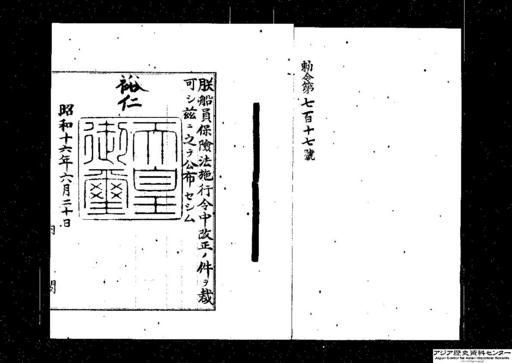 勅令第七百十七號
朕船員保險法施行令中改正ノ件ヲ裁
可シ茲ニ之ヲ公布セシム
裕仁
天皇御璽
昭和十六年六月二十日
内閣
アジア歴史資料センター
Japan Center for Asian Historical Records